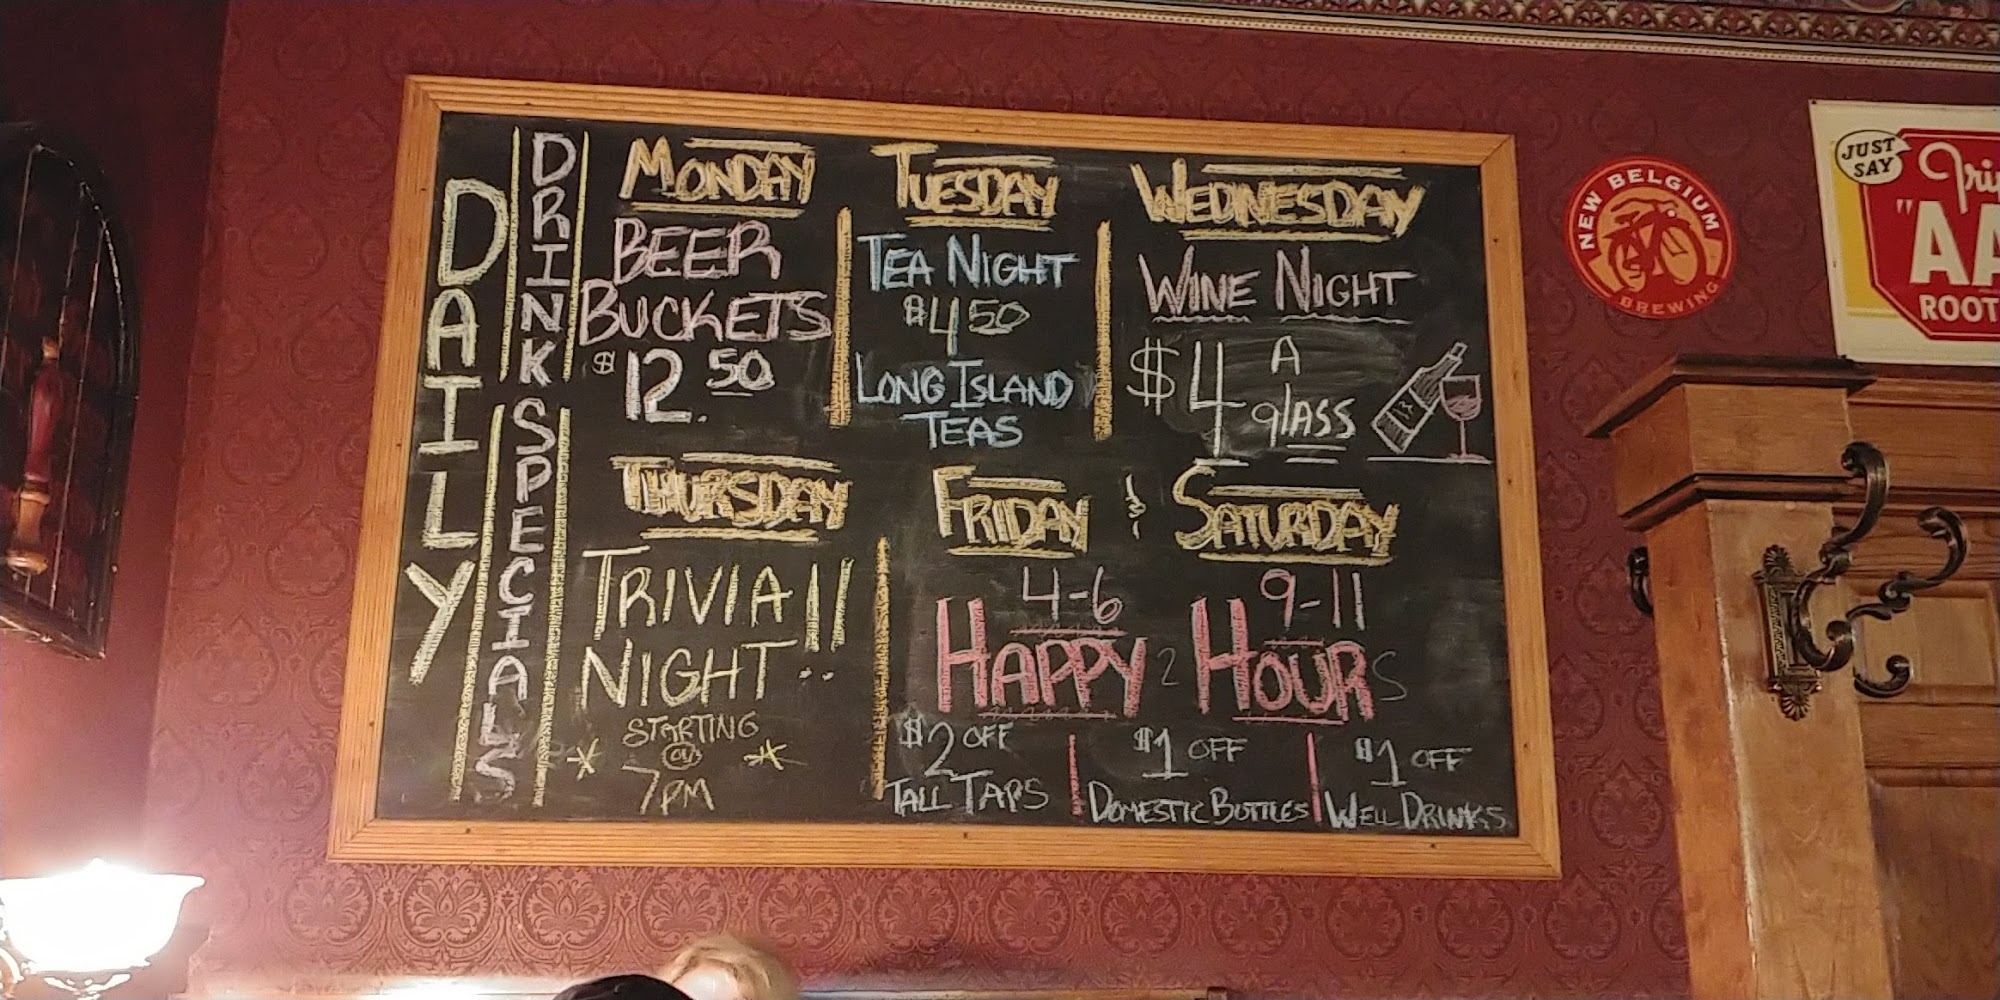 DAILY
DRINK SPECIALS
MONDAY
BEER
BUCKETS
$12.50
TUESDAY
TEA NIGHT
$4 50
LONG ISLAND
TEAS
WEDNESDAY
WINE NIGHT
$4 A
glASS
THURSDAY
TRIVIA!!
NIGHT
STARTING
@
* 7PM *
FRIDAY & SATURDAY
4-6 9-11
HAPPY 2 HOURS
$2 OFF
TALL TAPS
$1 OFF
DOMESTIC BOTTLES
$1 OFF
WELL DRINKS
NEW BELGIUM
BREWING
JUST
SAY
"AA
ROOT